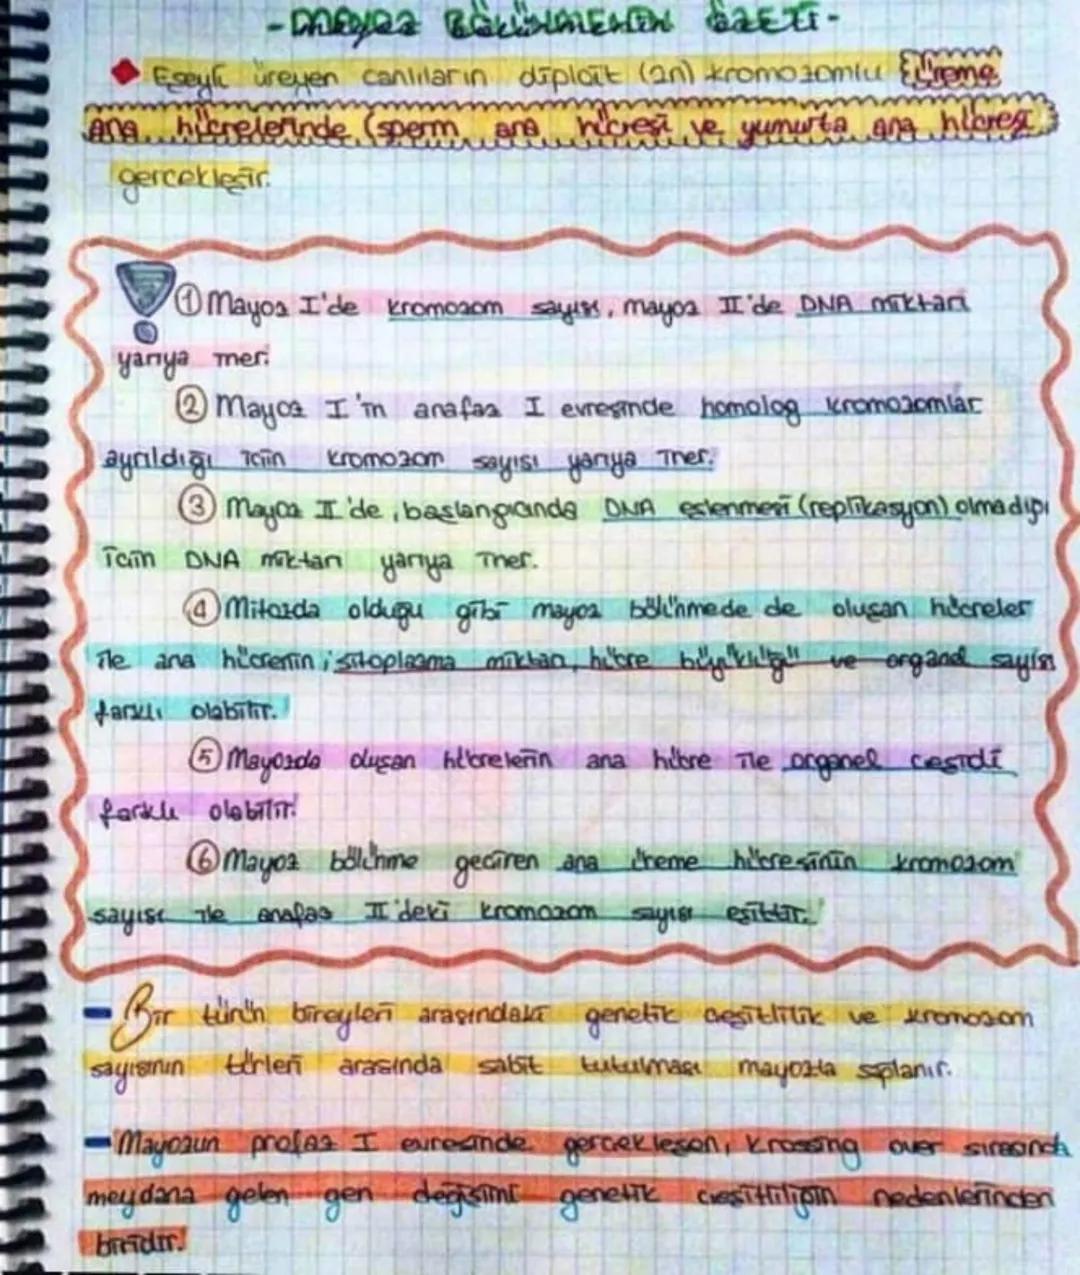 - MAYOZ BÖLÜNMENİN ÖZETİ -
Eşeyli üreyen canlıların diploit (2n) kromozomlu üreme
ana hücrelerinde (sperm ana hücresi ve yumurta ana hücresi)
gerçekleşir.
① Mayoz I'de kromozom sayısı, mayoz II'de DNA miktarı
yarıya iner.
② Mayoz I'in anafaz I evresinde homolog kromozomlar
ayrıldığı için kromozom sayısı yarıya iner.
③ Mayoz II'de, başlangıcında DNA eşlenmesi (replikasyon) olmadığı
için DNA miktarı yarıya iner.
④ Mitozda olduğu gibi mayoz bölünmede de oluşan hücreler
ile ana hücrenin; sitoplazma miktarı, hücre büyüklüğü ve organel sayısı
farklı olabilir.
⑤ Mayozda oluşan hücrelerin ana hücre ile organel çeşidi
farklı olabilir.
⑥ Mayoz bölünme geçiren ana üreme hücresinin kromozom
sayısı ile anafaz II'deki kromozom sayısı eşittir.
- Bir türün bireyleri arasındaki genetik çeşitlilik ve kromozom
sayısının türleri arasında sabit tutulması mayozla sağlanır.
- Mayozun profaz I evresinde gerçekleşen, krossing over sırasında
meydana gelen gen değişimi genetik çeşitliliğin nedenlerinden
biridir.